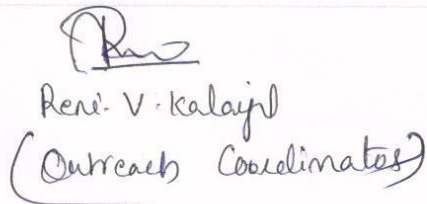 Reni. V. Kalayil
(Outreach Coordinator)